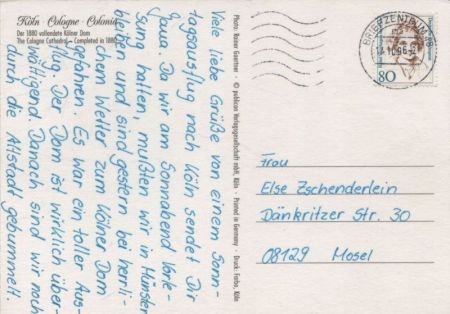 Köln · Cologne · Colonia
Der 1880 vollendete Kölner Dom
The Cologne Cathedral – Completed in 1880
Viele liebe Grüße von einem Sonn-
tagsausflug nach Köln sendet Dir
Jana. Da wir am Sonnabend Vorle-
sung hatten, mußten wir in Münster
bleiben und sind gestern bei herrli-
chem Wetter zum Kölner Dom
gefahren. Es war ein toller Aus-
flug. Der Dom ist wirklich über-
wältigend. Danach sind wir noch
durch die Altstadt gebummelt.
Photo: Rainer Gaertner · © publicon Verlagsgesellschaft mbH, Köln · Printed in Germany · Druck: Farbo, Köln
BRIEFZENTRUM
80
Frau
Else Zschenderlein
Dänkritzer Str. 30
08129 Mosel